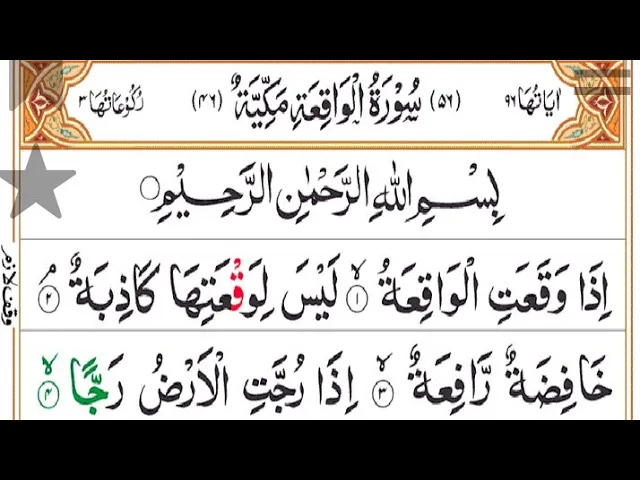 اٰیَاتُهَا ٩٦ (٥٦) سُوْرَةُ الْوَاقِعَةِ مَكِّيَّةٌ (٤٦) رُكُوْعَاتُهَا ٣
بِسْمِ اللّٰهِ الرَّحْمٰنِ الرَّحِيْمِ
اِذَا وَقَعَتِ الْوَاقِعَةُ ۙ ١ لَيْسَ لِوَقْعَتِهَا كَاذِبَةٌ ۘ ٢
وقف لازم
خَافِضَةٌ رَّافِعَةٌ ۙ ٣ اِذَا رُجَّتِ الْاَرْضُ رَجًّا ۙ ٤